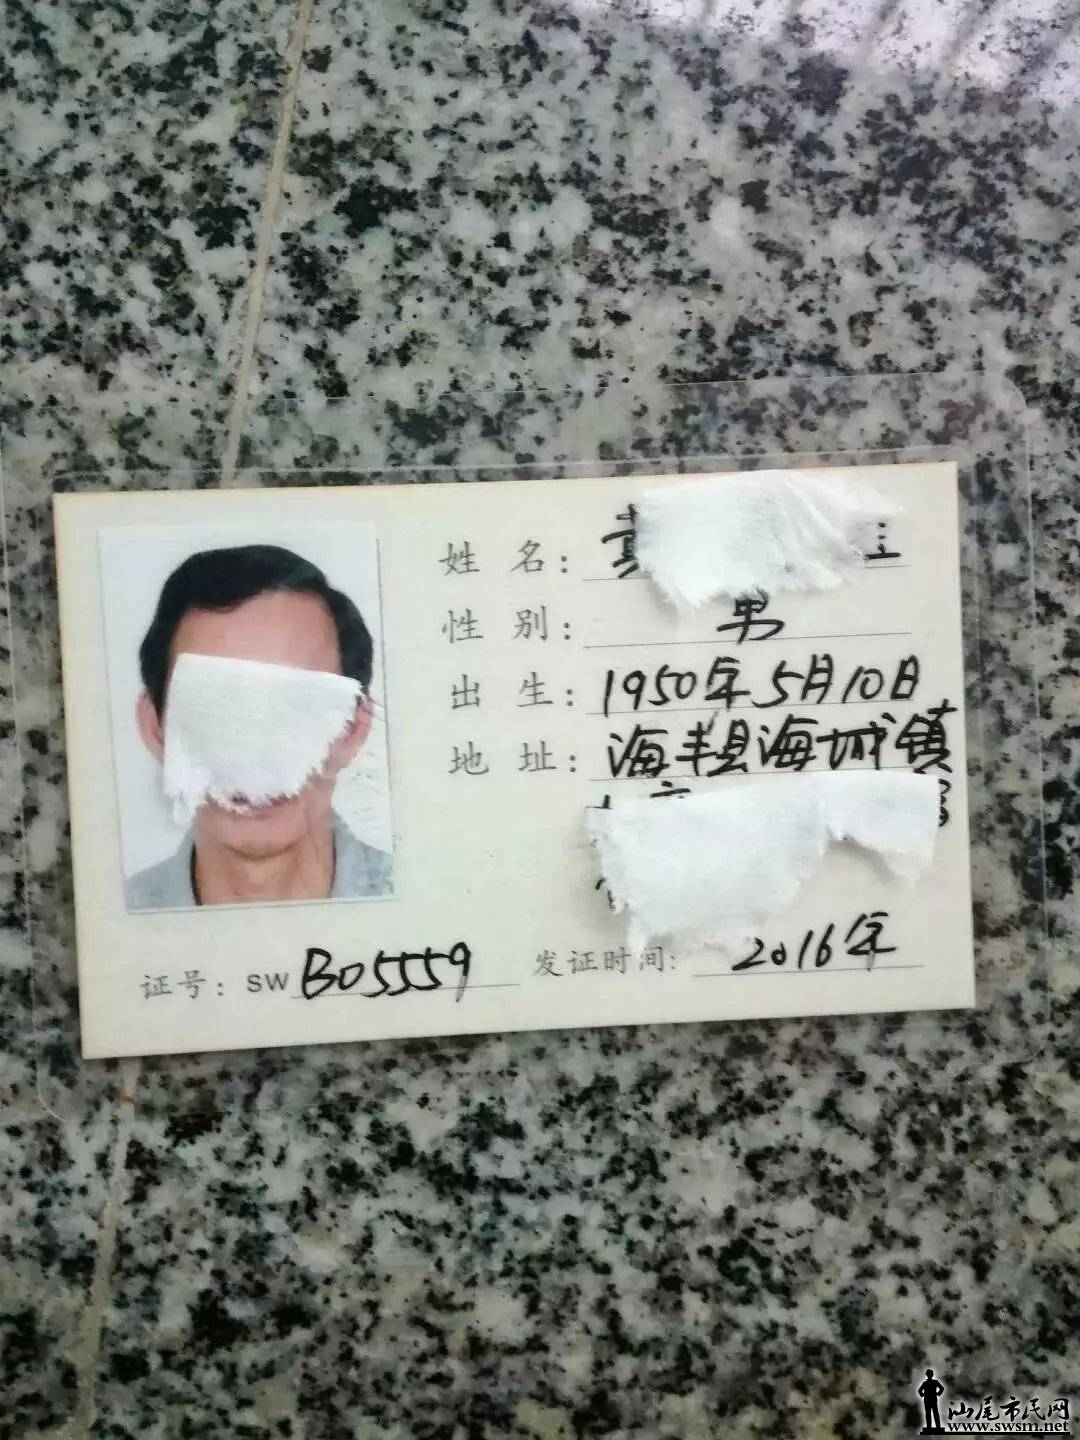 姓 名：
性 别： 男
出 生： 1950年5月10日
地 址： 海丰县海城镇
证号： SW B05559 发证时间: 2016年
汕尾市民网
www.swsm.net